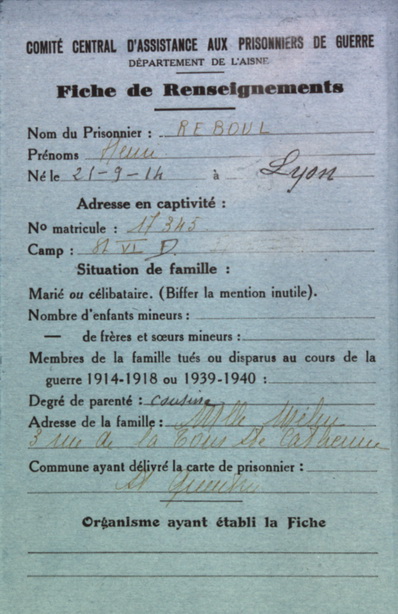 COMITÉ CENTRAL D'ASSISTANCE AUX PRISONNIERS DE GUERRE
DÉPARTEMENT DE L'AISNE
Fiche de Renseignements
Nom du Prisonnier : REBOUL
Prénoms Henri
Né le 21-9-14 à Lyon
Adresse en captivité :
No matricule : 17 345
Camp : St VI D.
Situation de famille :
Marié ou célibataire. (Biffer la mention inutile).
Nombre d'enfants mineurs :
— de frères et sœurs mineurs :
Membres de la famille tués ou disparus au cours de la
guerre 1914-1918 ou 1939-1940 :
Degré de parenté : cousine
Adresse de la famille : Melle
3 rue de la Tour Ste Catherine
Commune ayant délivré la carte de prisonnier :
St Quentin
Organisme ayant établi la Fiche